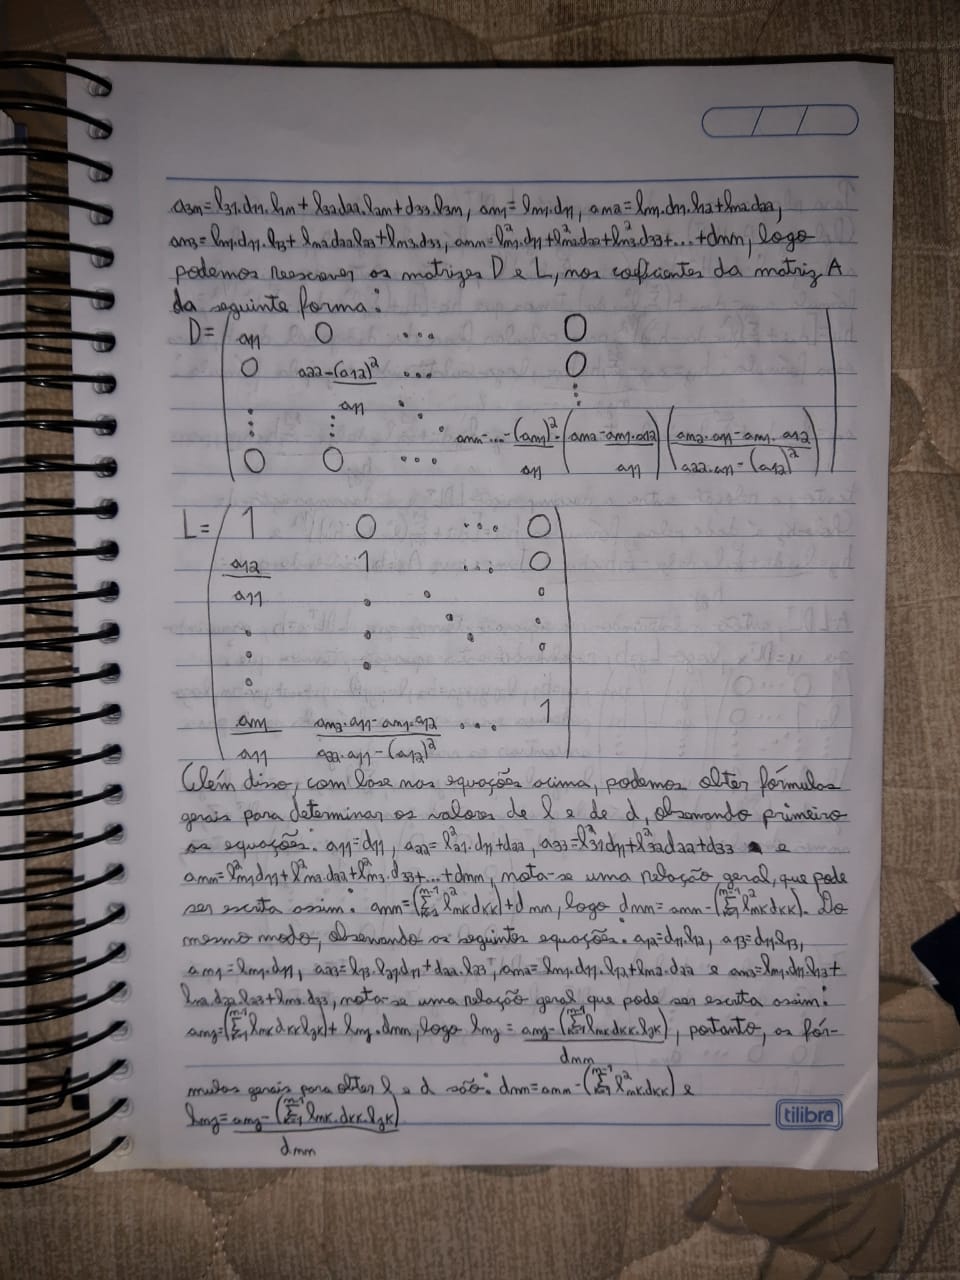 a3n=l31.d11.l1n+l32d22.l2n+d33.l3n, an1=ln1.d11, an2=ln1.d11.l12+ln2.d22,
an3=ln1.d11.l13+ln2d22l23+ln3.d33, ann=l²n1.d11+l²n2d22+l²n3.d33+...+dnn, logo
podemos reescrever as matrizes D e L, nos coeficientes da matriz A
da seguinte forma:
D= a11 0 ... 0
0 a22-(a12)²/a11 ... 0
⋮ ⋮ ⋱ ⋮
0 0 ... ann-...-(an1)²/a11-(an2-an1.a12/a11)(an2.a11-an1.a12/a22.a11-(a12)²)
L= 1 0 ... 0
a12/a11 1 ... 0
⋮ ⋮ ⋱ ⋮
an1/a11 an2.a11-an1.a12/a22.a11-(a12)² ... 1
Além disso, com base nas equações acima, podemos obter fórmulas
gerais para determinar os valores de l e de d, observando primeiro
as equações: a11=d11, a22=l²21.d11+d22, a33=l²31d11+l²32d22+d33 e
ann=l²n1d11+l²n2.d22+l²n3.d33+...+dnn, nota-se uma relação geral, que pode
ser escrita assim: ann=(n-1Σ1 l²nKdKK)+dnn, logo dnn=ann-(n-1Σ1 l²nKdKK). Do
mesmo modo, observando as seguintes equações: a12=d11.l12, a13=d11.l13,
an1=ln1.d11, a23=l13.l21d11+d22.l23, an2=ln1.d11.l12+ln2.d22 e an3=ln1.d11.l13+
ln2.d22.l23+ln3.d33, nota-se uma relação geral que pode ser escrita assim:
anj=(n-1Σ1 lnKdKKljK)+lnj.dnn, logo lnj=anj-(n-1Σ1 lnKdKK.ljK)/dnn, portanto, as fór-
mulas gerais para obter l e d são: dnn=ann-(n-1Σ1 l²nK.dKK) e
lnj=anj-(n-1Σ1 lnK.dKK.ljK)/dnn
tilibra